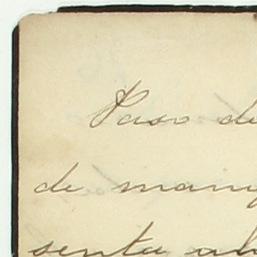 Paso de
de mani
senta al